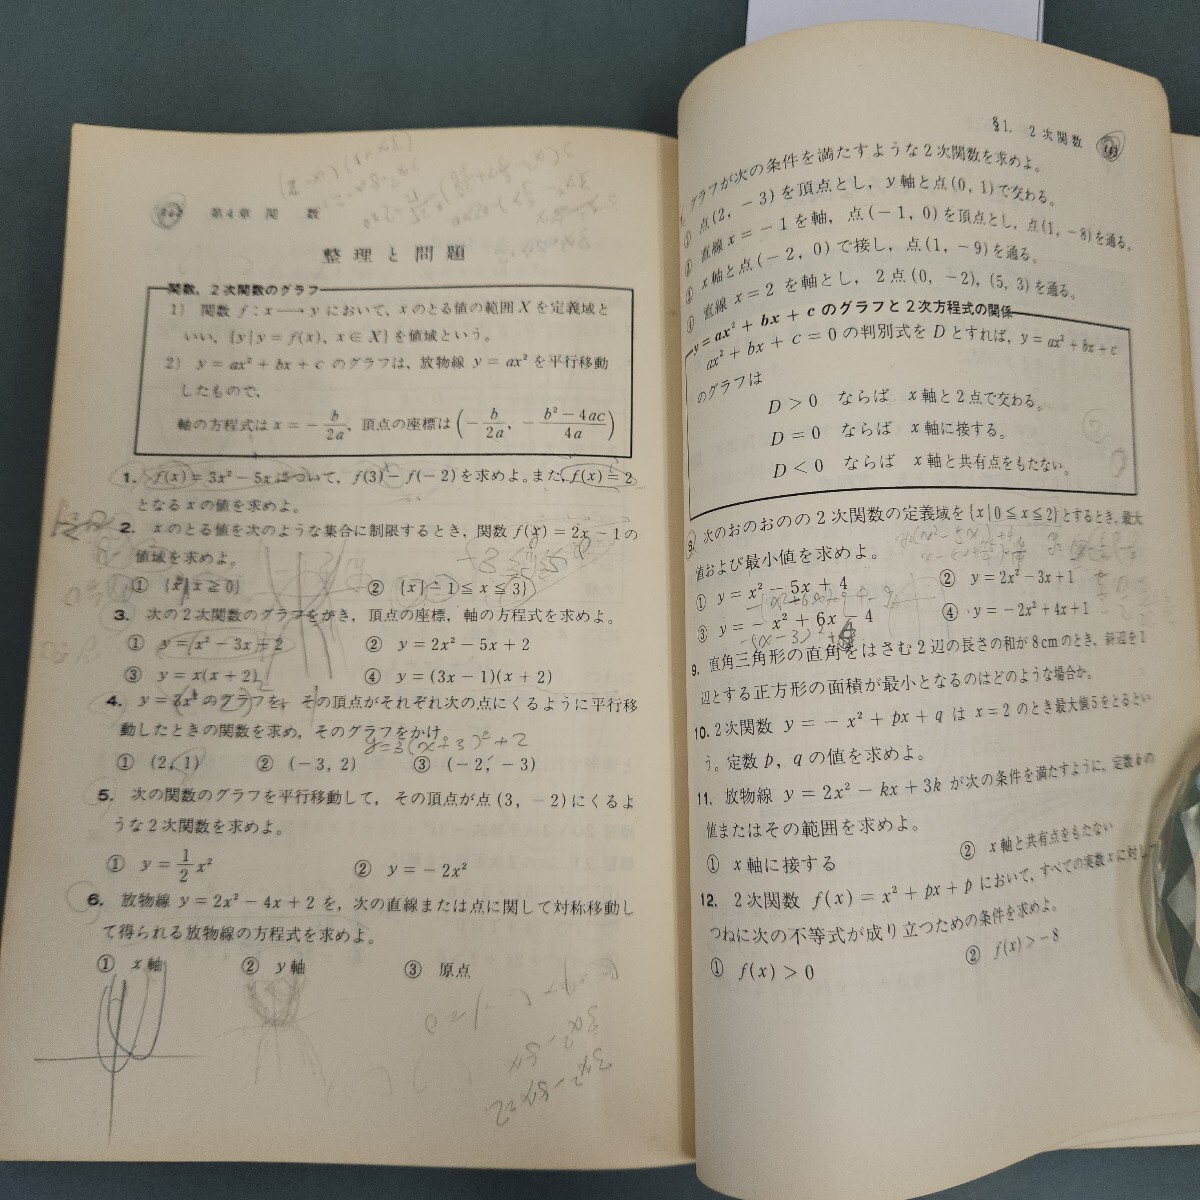 第4章 関 数
整理と問題
関数，2次関数のグラフ
1) 関数 f：x→y において，x のとる値の範囲 X を定義域と
いい，{y|y=f(x)，x∈X} を値域という。
2) y=ax²+bx+c のグラフは，放物線 y=ax² を平行移動
したもので，
軸の方程式は x=-b/2a，頂点の座標は (-b/2a，-(b²-4ac)/4a)
1. f(x)=3x²-5x について，f(3)-f(-2) を求めよ。また，f(x)=2
となる x の値を求めよ。
2. x のとる値を次のような集合に制限するとき，関数 f(x)=2x-1 の
値域を求めよ。
① {x|x≧0} ② {x|-1≦x≦3}
3. 次の2次関数のグラフをかき，頂点の座標，軸の方程式を求めよ。
① y=x²-3x+2 ② y=2x²-5x+2
③ y=x(x+2) ④ y=(3x-1)(x+2)
4. y=3x² のグラフを，その頂点がそれぞれ次の点にくるように平行移
動したときの関数を求め，そのグラフをかけ。
y=3(x+3)²+2
① (2，1) ② (-3，2) ③ (-2，-3)
5. 次の関数のグラフを平行移動して，その頂点が点(3，-2)にくるよ
うな2次関数を求めよ。
① y=1/2x² ② y=-2x²
6. 放物線 y=2x²-4x+2 を，次の直線または点に関して対称移動し
て得られる放物線の方程式を求めよ。
① x軸 ② y軸 ③ 原点
3x²-5x
3x²-5x=2
§1. 2次関数
グラフが次の条件を満たすような2次関数を求めよ。
点(2，-3)を頂点とし，y軸と点(0，1)で交わる。
直線 x=-1 を軸，点(-1，0)を頂点とし，点(1，-8)を通る。
x軸と点(-2，0)で接し，点(1，-9)を通る。
直線 x=2 を軸とし，2点(0，-2)，(5，3)を通る。
y=ax²+bx+c のグラフと2次方程式の関係
ax²+bx+c=0 の判別式を D とすれば，y=ax²+bx+c
のグラフは
D>0 ならば x軸と2点で交わる。
D=0 ならば x軸に接する。
D<0 ならば x軸と共有点をもたない。
8. 次のおのおのの2次関数の定義域を {x|0≦x≦2} とするとき，最大
値および最小値を求めよ。
① y=x²-5x+4 ② y=2x²-3x+1
③ y=-x²+6x-4 ④ y=-2x²+4x+1
9. 直角三角形の直角をはさむ2辺の長さの和が8cmのとき，斜辺を1
辺とする正方形の面積が最小となるのはどのような場合か。
10. 2次関数 y=-x²+px+q は x=2 のとき最大値5をとるとい
う。定数 p，q の値を求めよ。
11. 放物線 y=2x²-kx+3k が次の条件を満たすように，定数 k の
値またはその範囲を求めよ。
① x軸に接する ② x軸と共有点をもたない
12. 2次関数 f(x)=x²+px+p において，すべての実数 x に対して
つねに次の不等式が成り立つための条件を求めよ。
① f(x)>0 ② f(x)>-8